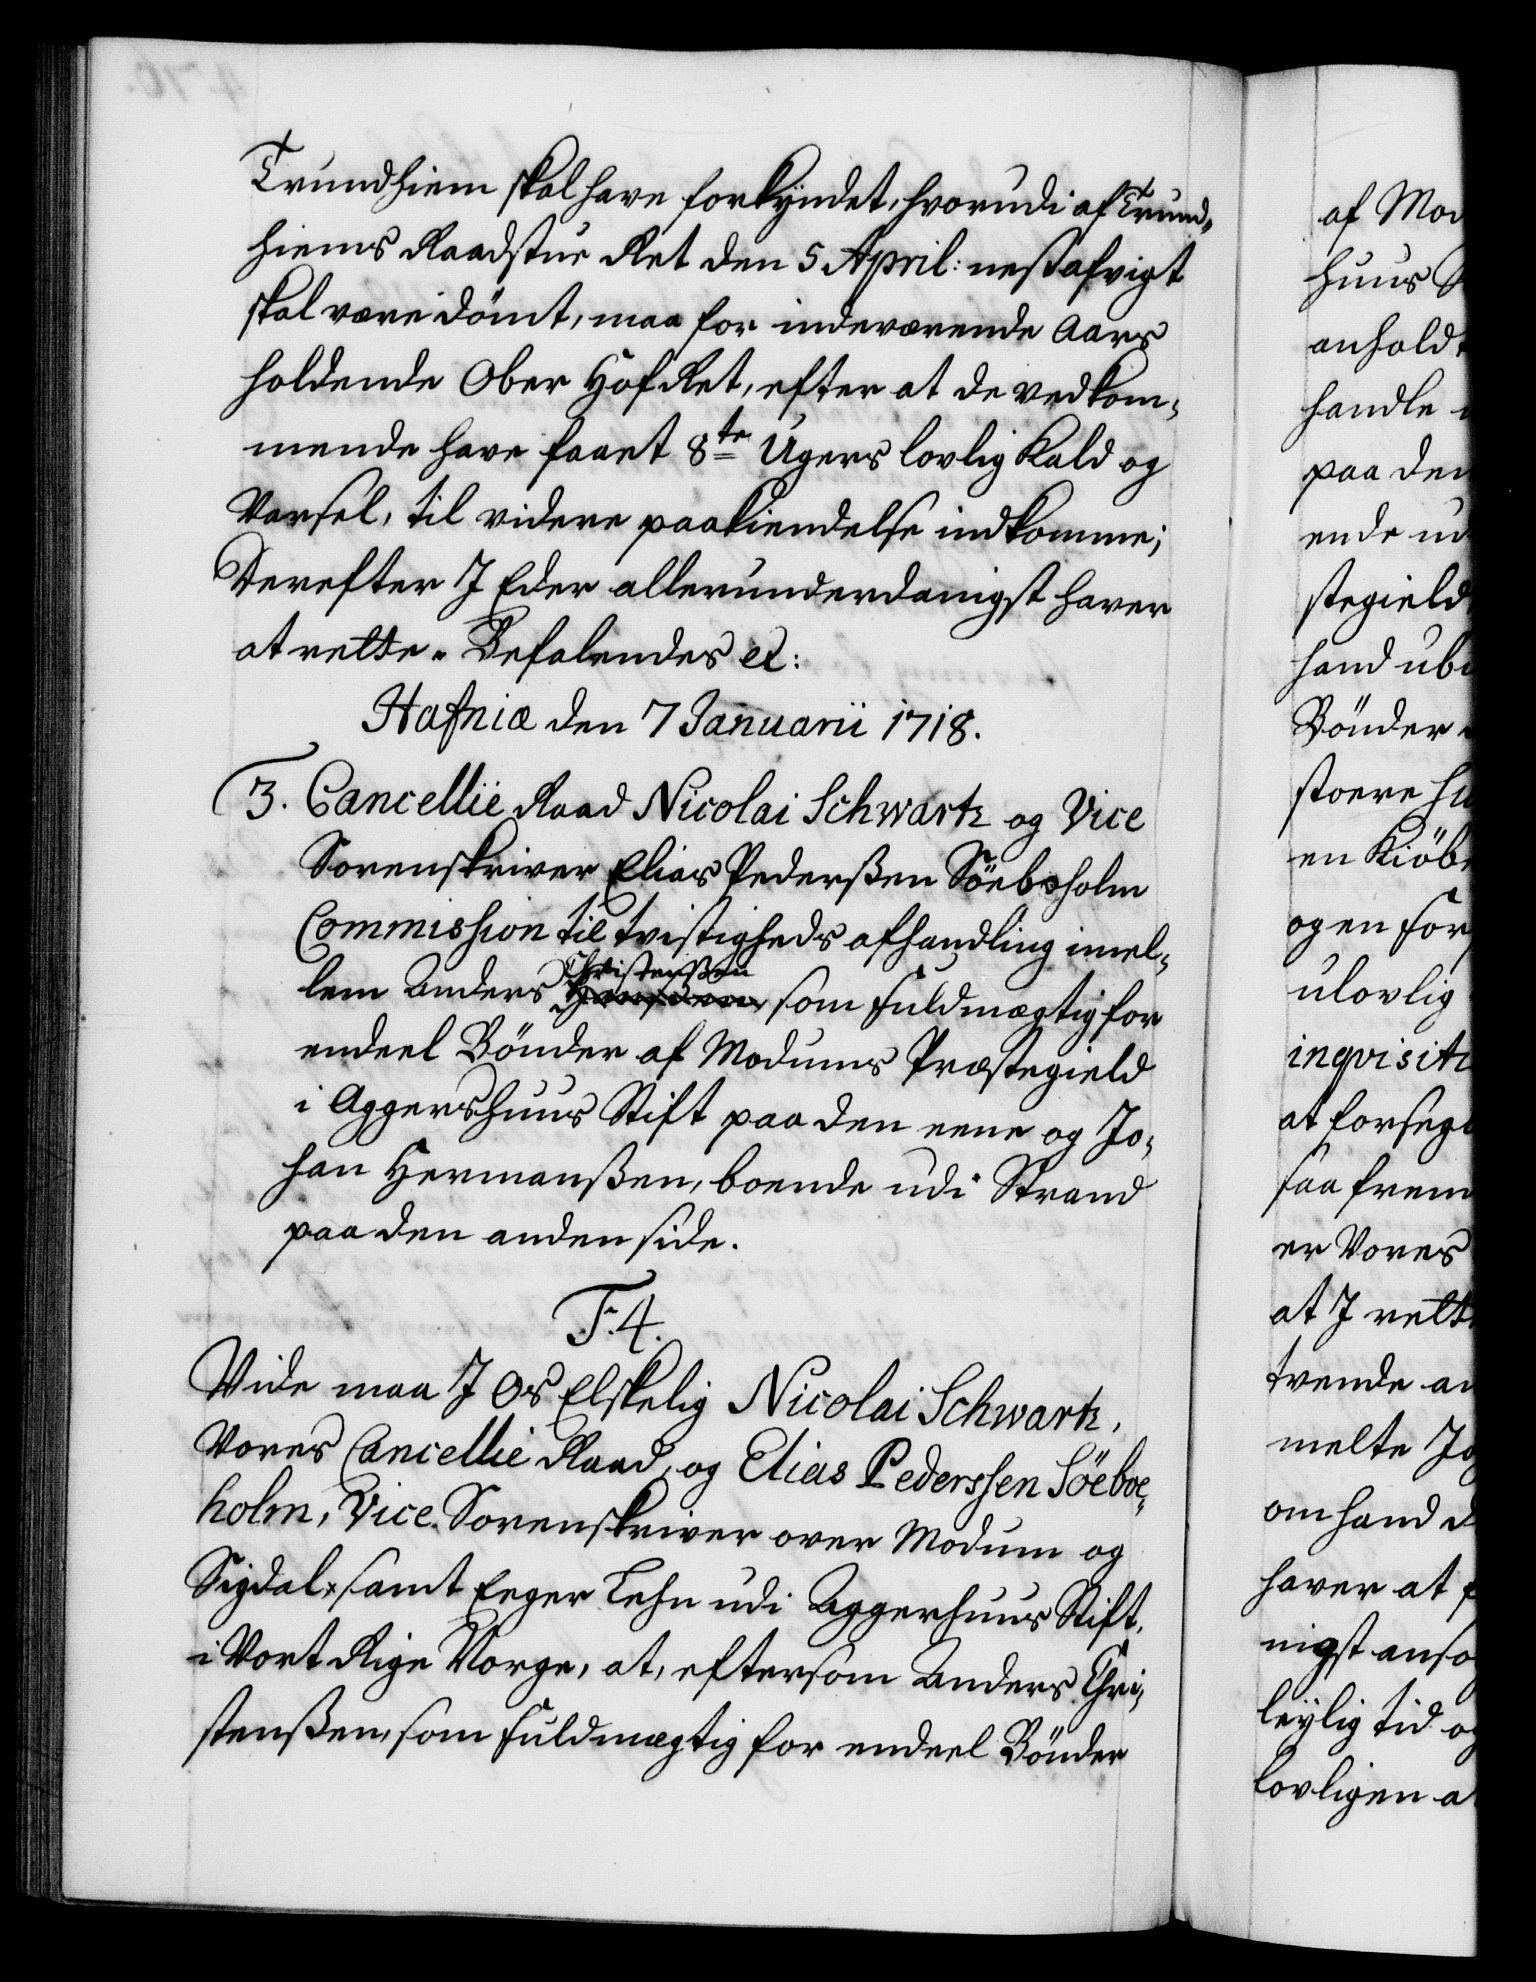 Trundhiem skal have forkÿndet, hvorudi af Trund-
hiems Raadstue Ret den 5 April: nestafvigt
skal være dömt, maa for indeværende Aars
holdende Ober Hof Ret, efter at de vedkom-
mende have faaet 8te Ugers lovlig Kald og
Varsel, til videre paakiendelse indkomme;
Derefter I Eder allerunderdanigst haver
at rette. Befalendes etc:
Hafniæ den 7 Januarii 1718.
3. Cancellie Raad Nicolai Schwartz og Vice
Sorenskriver Elias Pederssen Söeboholm
Commission til tvistigheds afhandling imel-
lem Anders Christenssen som fuldmægtig for
endeel Bönder af Modums Præstegield
i Aggershuus Stift paa den eene og Jo-
han Hermanssen, boende udi Strand
paa den anden side.
F. 4.
Vide maa I Os Elskelig Nicolai Schwartz,
Vores Cancellie Raad, og Elias Pederssen Söeboe-
holm, Vice Sorenskriver over Modum og
Sigdal, samt Eeger Lehn udi Aggerhuus Stift,
i Vort Rige Norge, at, eftersom Anders Chri-
stenssen, som fuldmægtig for endeel Bönder
af Mod
huus S
anhold
handle
paa den
ende ud
stegield
hand ube
Bönder
stoere hu
en Kiöb
og en for
ulovlig
inqvisit
at forseg
saa frem
er Vores
at I rett
tvende an
melte Jo
om hand d
haver at f
nigst ansø
leÿlig tid og
lovligen a